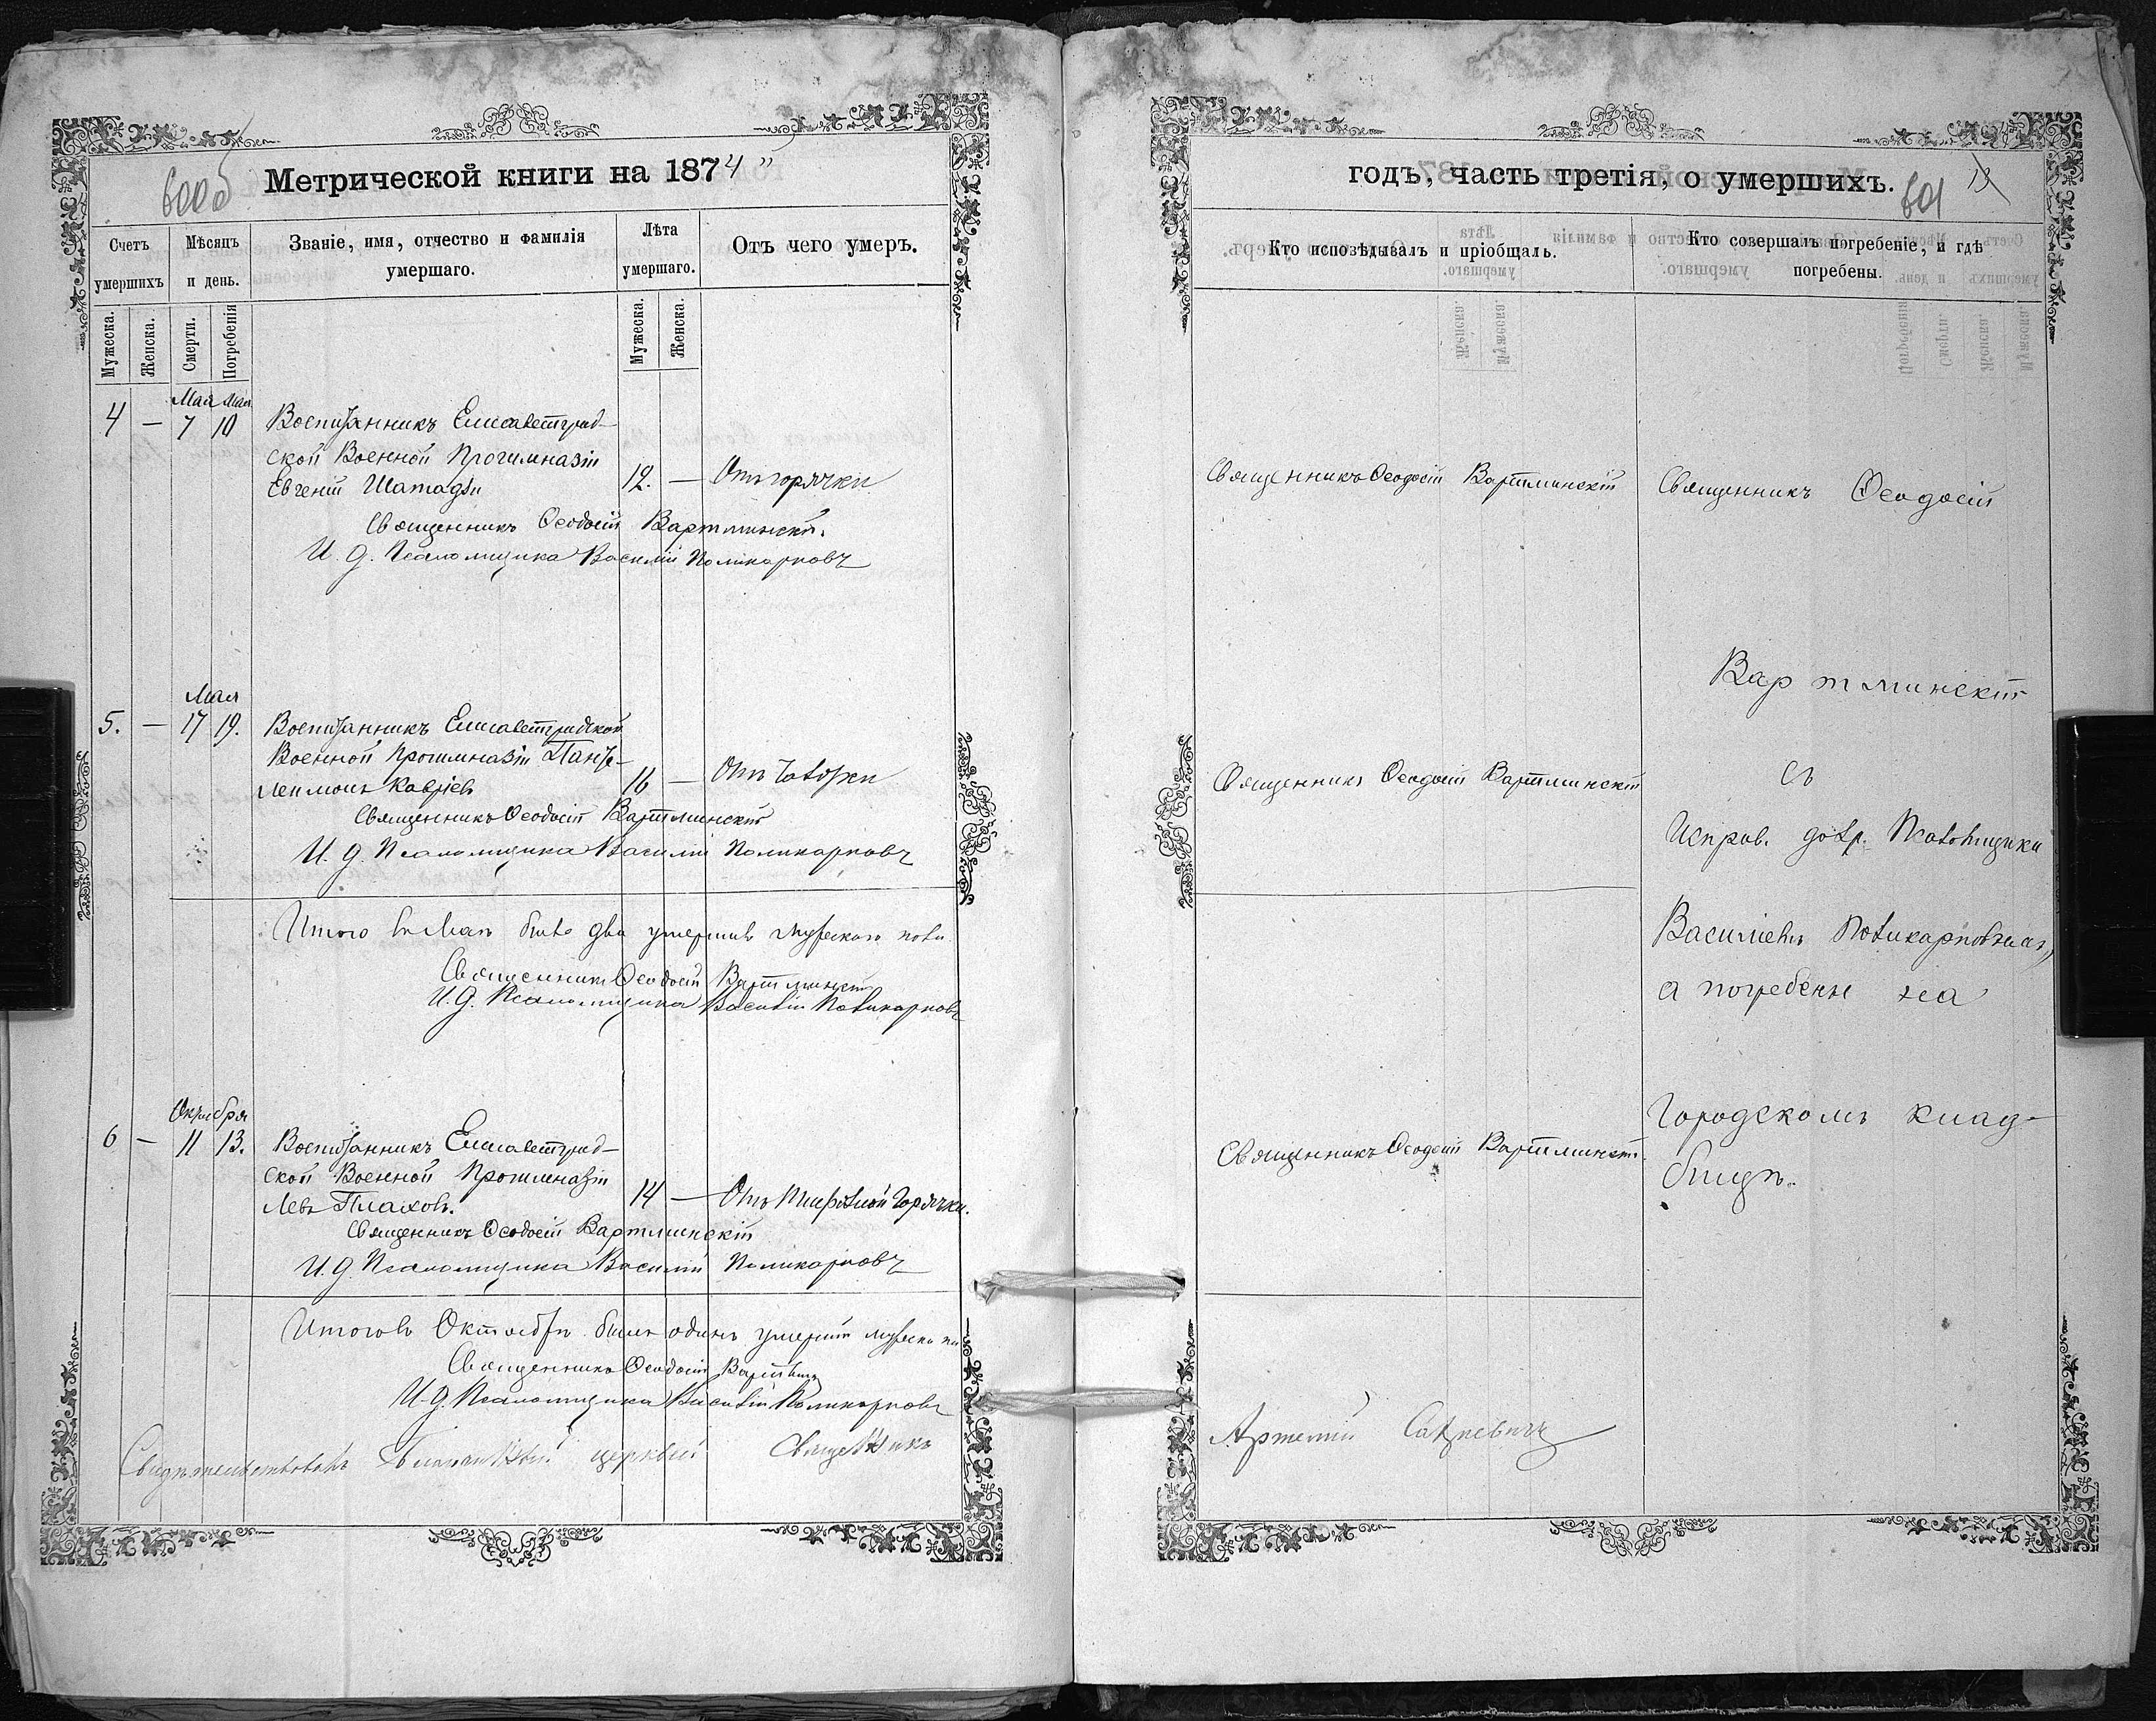 600об
Метрической книги на 1874
Счетъ умершихъ
Мѣсяцъ и день.
Званіе, имя, отчество и фамилія умершаго.
Лѣта умершаго.
Отъ чего умеръ.
Мужеска.
Женска.
Смерти.
Погребенія
Мужеска.
Женска.
Мая Мая
4 — 7 10 Воспитанникъ Елисаветград-
ской Военной Прогимназіи
Евгеній 12. — Отъ горячки
Священникъ Ѳеодосій Вартминскій.
И. д. Псаломщика Василій Поликарповъ
Мая
5. — 17 19. Воспитанникъ Елисаветградской
Военной Прогимназіи Панте-
леимонъ 16 — Отъ
Священникъ Ѳеодосій Вартминскій
И. д. Псаломщика Василій Поликарповъ
Итого въ Маѣ было два умершихъ мужескаго пола
Священникъ Ѳеодосій Вартминскій
И. д. Псаломщика Василій Поликарповъ
Октября
6 — 11 13. Воспитанникъ Елисаветград-
ской Военной Прогимназіи
Левъ Плаховъ. 14 — Отъ Тифозной Горячки.
Священникъ Ѳеодосій Вартминскій
И. д. Псаломщика Василій Поликарповъ
Итого въ Октябрѣ былъ одинъ умершій мужеска
Священникъ Ѳеодосій
И. д. Псаломщика Василій Поликарповъ
Свидѣтельствовалъ церквей Священникъ
годъ, часть третія, о умершихъ.
601
13
Кто исповѣдывалъ и пріобщалъ.
Кто совершалъ погребеніе, и гдѣ погребены.
Священникъ Ѳеодосій Вартминскій
Священникъ Ѳеодосій
Вартминскій
Священникъ Ѳеодосій Вартминскій
съ
Исправ. долж. Псаломщика
Василіемъ Поликарповымъ,
а погребены на
Городскомъ клад-
бищѣ.
Священникъ Ѳеодосій Вартминскій.
Артемій